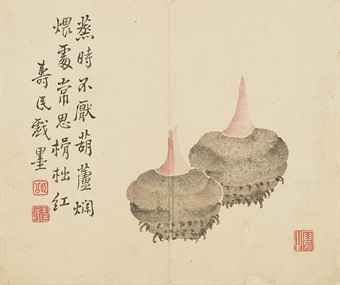 蒸時不厭葫蘆爛
煨處常思榾柮紅
壽民戲墨